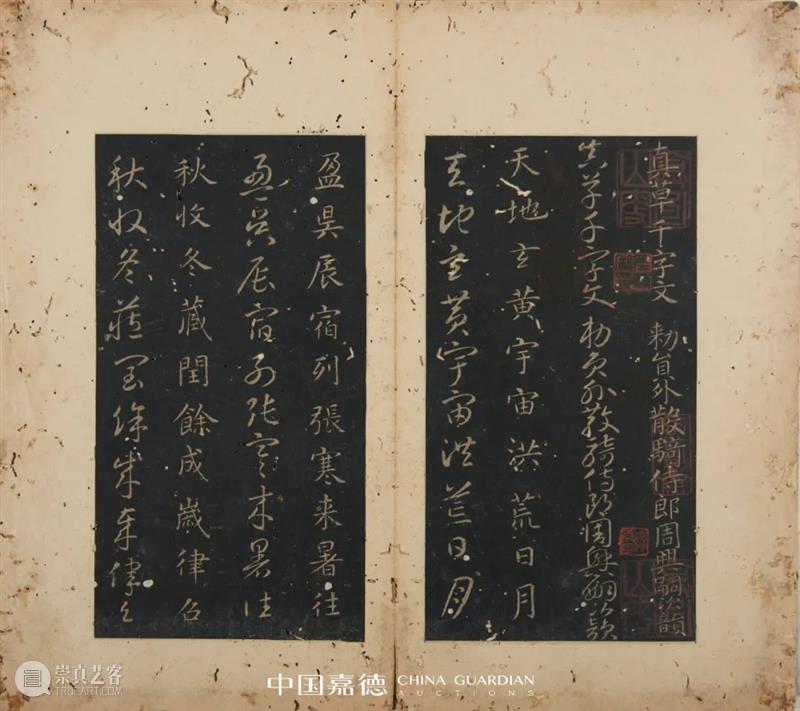 真草千字文 勑員外散騎侍郎周興嗣次韻
真草千字文 勑員外散騎侍郎周興嗣次韻
天地玄黃宇宙洪荒日月
天地玄黃宇宙洪荒日月
盈昃辰宿列張寒来暑往
盈昃辰宿列張寒来暑往
秋收冬藏閏餘成歲律召
秋收冬藏閏餘成歲律召
中国嘉德 CHINA GUARDIAN
AUCTIONS
崇真艺客
TRUEART.COM